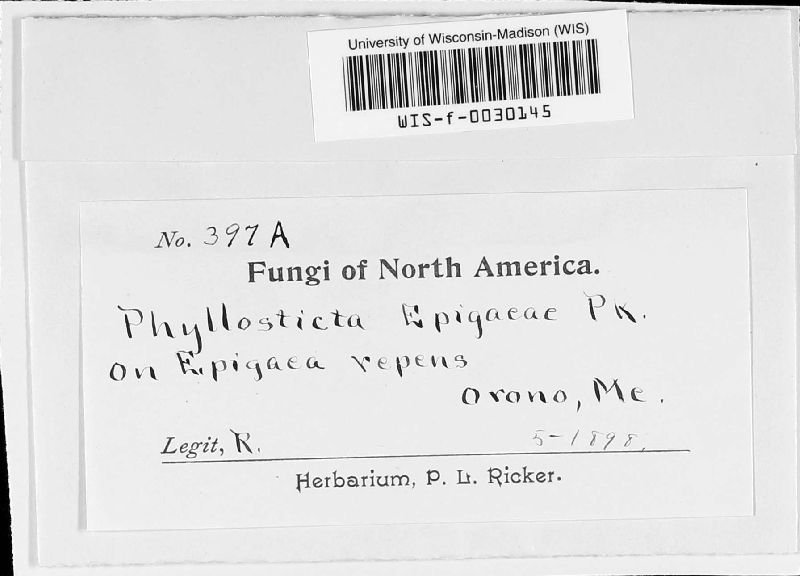 University of Wisconsin-Madison (WIS)
WIS-f-0030145
No. 397 A
Fungi of North America.
Phyllosticta Epigaeae Pk.
on Epigaea repens
Orono, Me.
Legit, R. 5-1898.
Herbarium, P. L. Ricker.